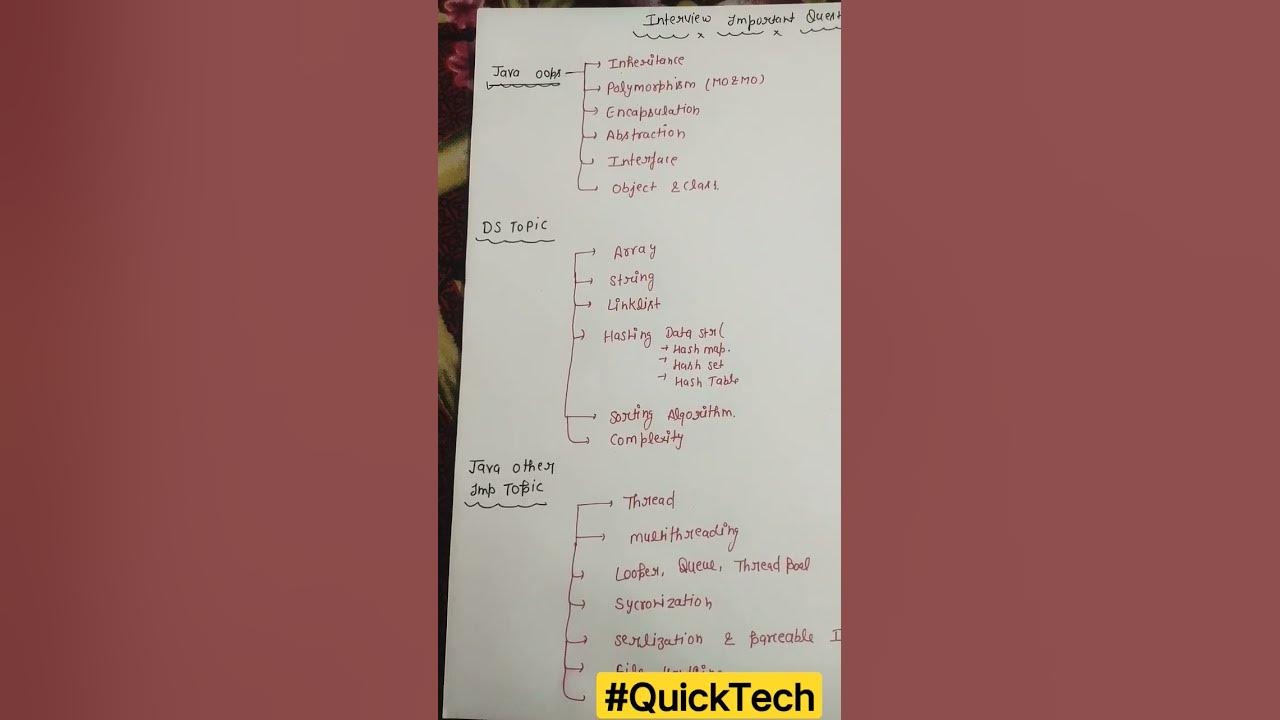 Interview Important Quest
Java oops
Inheritance
Polymorphism (MO & MO)
Encapsulation
Abstraction
Interface
Object & Class.
DS Topic
Array
String
Linklist
Hashing Data str(
Hash map.
Hash set
Hash Table
Sorting Algorithm.
Complexity
Java other
Imp Topic
Thread
multithreading
Looper, Queue, Thread Pool
Sycronization
serlization & parceable I
File
#QuickTech